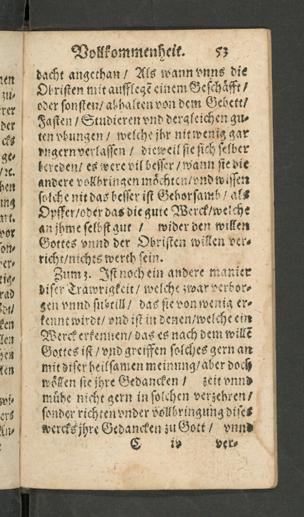 Vollkommenheit. 53
dacht angethan / Als wann vnns die
Obristen mit aufflegẽ einem Geschäfft /
oder sonsten / abhalten von dem Gebett /
Fasten / Studieren vnd dergleichen gu-
ten vbungen / welche jhr nit wenig gar
vngern verlassen / dieweil sie sich selber
bereden / es were vil besser / wann sie die
andere vollbringen möchten / vnd wissen
solche nit das besser ist Gehorsamb / als
Opffer / oder das die gute Werck / welche
an jhme selbst gut / wider den willen
Gottes vnnd der Obristen willen ver-
richt / nichts werth sein.
Zum 3. Ist noch ein andere manier
diser Trawrigkeit / welche zwar verbor-
gen vnnd subtill / das sie von wenig er-
kenne wirdt / vnd ist in denen / welche ein
Werck erkennen / das es nach dem willẽ
Gottes ist / vnd greiffen solches gern an
mit diser heilsamen meinung / aber doch
wöllen sie jhre Gedancken / zeit vnnd
mühe nicht gern in solchen verzehren /
sonder richten vnder vollbringung dises
wercks jhre Gedancken zu Gott / vnnd
C iv ver-